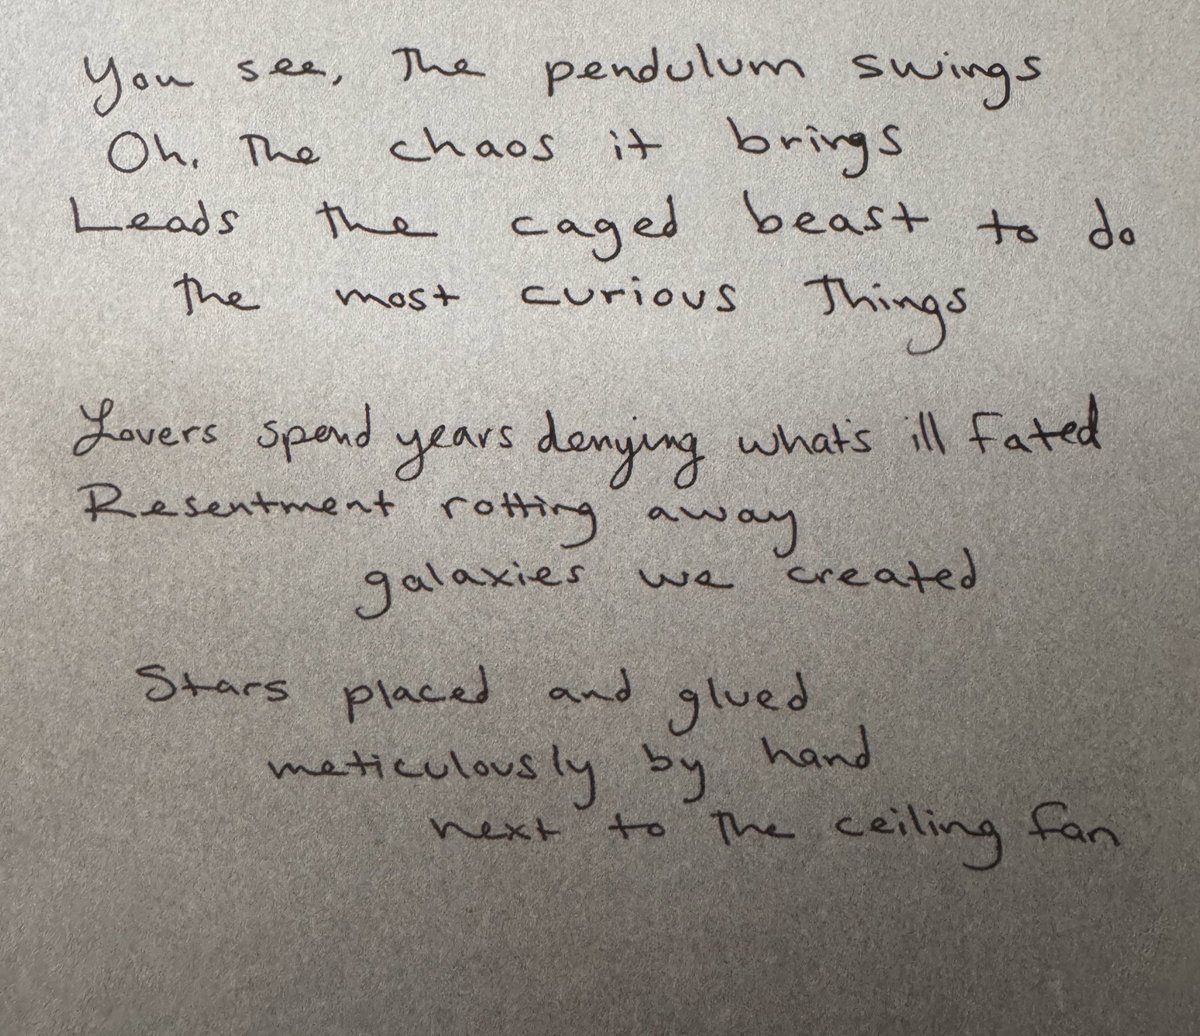 You see, The pendulum swings
Oh, The chaos it brings
Leads the caged beast to do
the most curious Things
Lovers spend years denying what's ill fated
Resentment rotting away
galaxies we created
Stars placed and glued
meticulously by hand
next to The ceiling fan